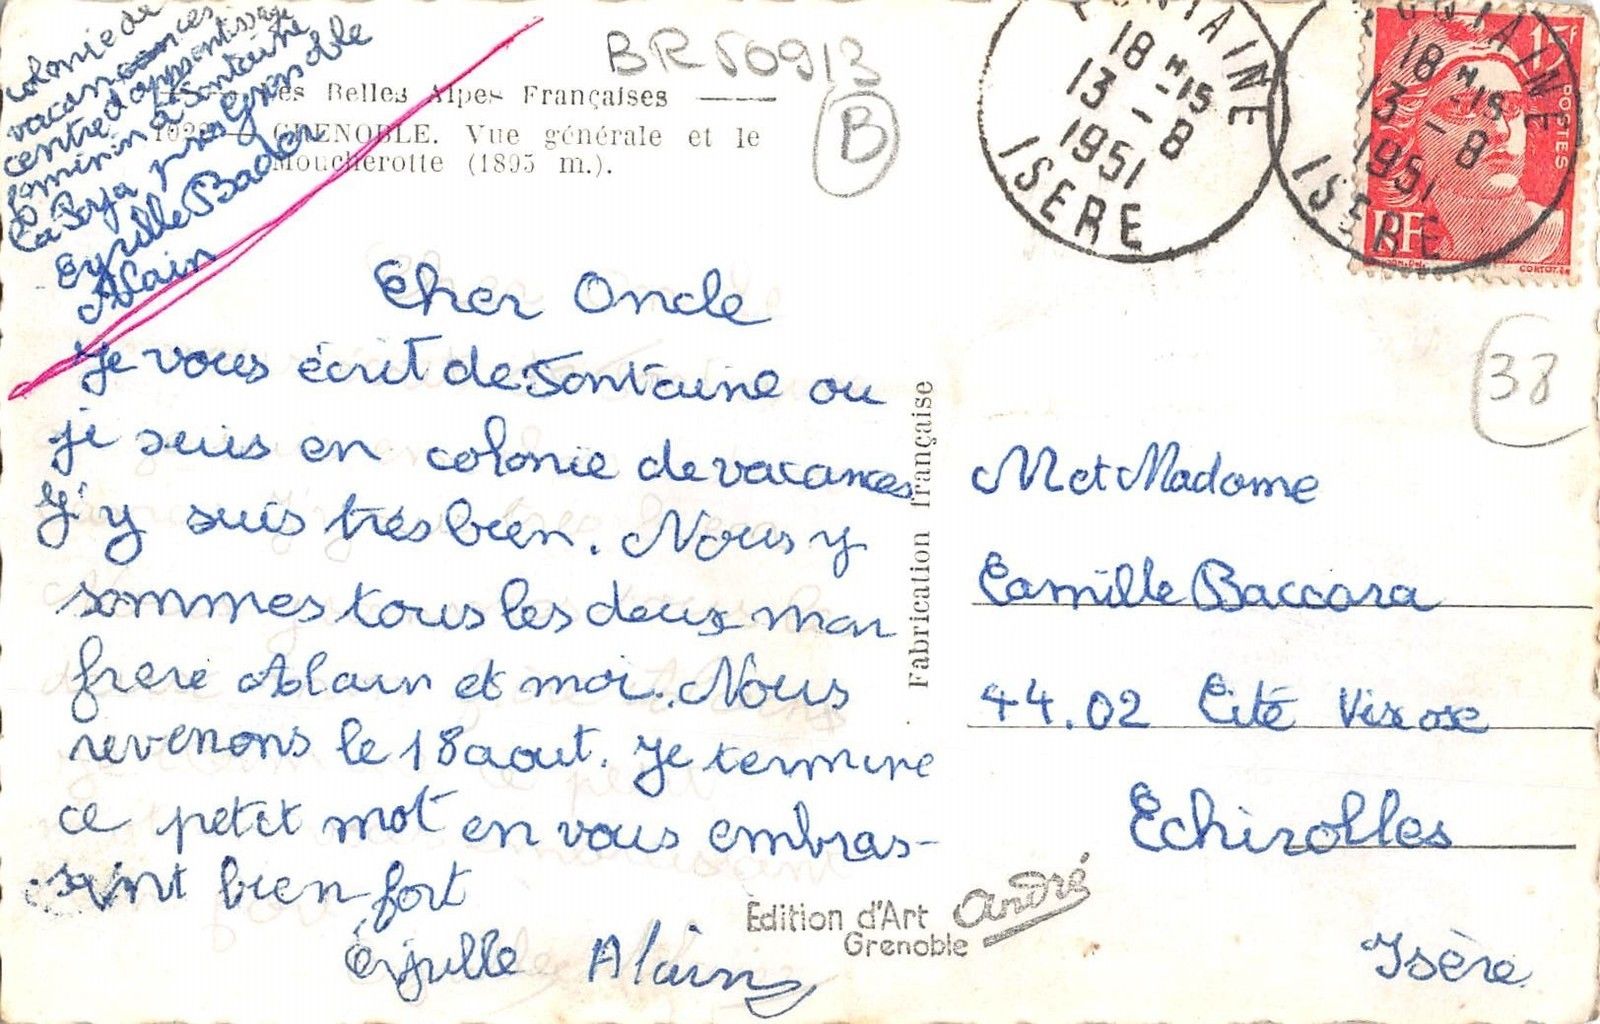 colonie de
vacances
centre d'apprentissage
féminin à Fontaine
La Poya près Grenoble
Alain
BR50913
B
Les Belles Alpes Françaises
GRENOBLE. Vue générale et le
Moucherotte (1895 m.).
FONTAINE
18 H 15
13 - 8
1951
ISERE
FONTAINE
18 H 15
13 - 8
1951
ISERE
POSTES
RF
CORTOT
38
Cher Oncle
Je vous écrit de Fontaine ou
je suis en colonie de vacances
J'y suis très bien. Nous y
sommes tous les deux mon
frere Alain et moi. Nous
revenons le 18 aout. Je termine
ce petit mot en vous embras-
sant bien fort
Alain
Fabrication française
M et Madame
Camille Baccara
44.02 Cité Viscose
Echirolles
Isère
Edition d'Art André
Grenoble